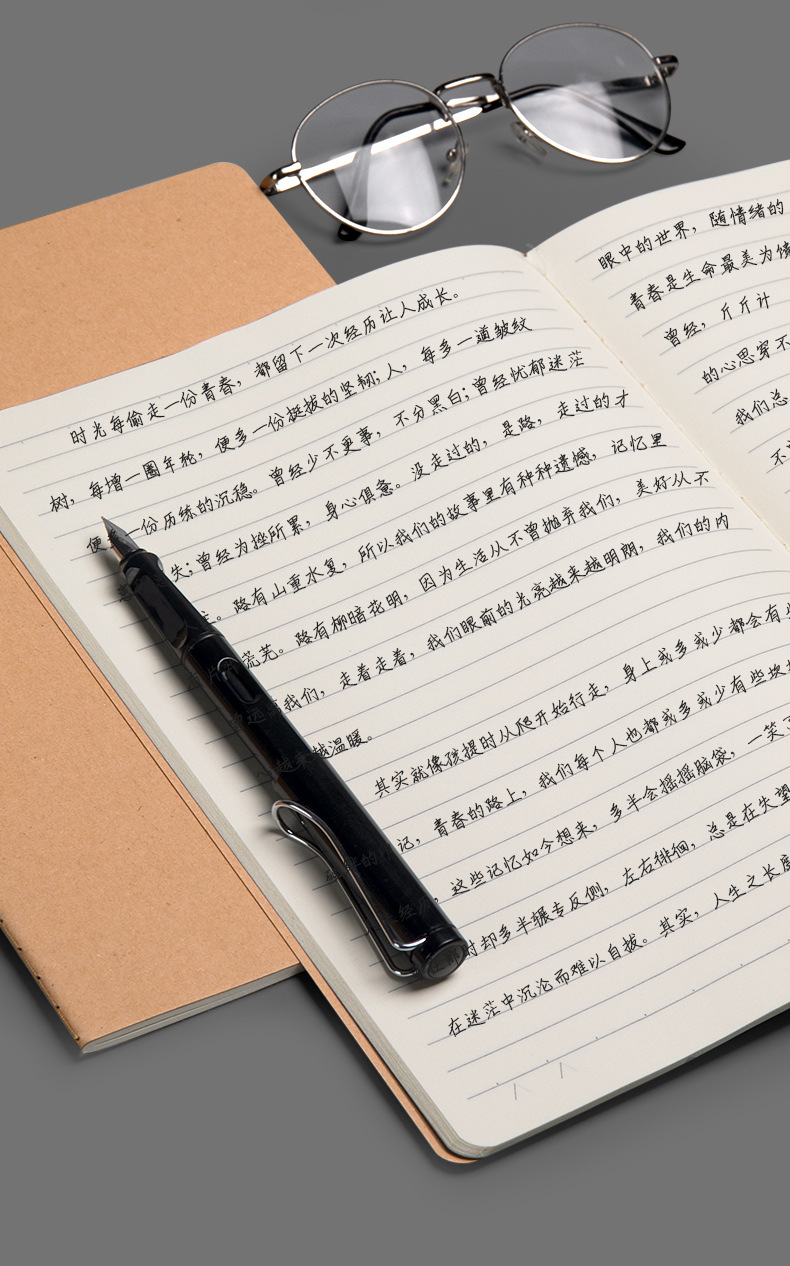 时光每偷走一份青春，都留下一次经历让人成长。
树，每增一圈年轮，便多一份挺拔的坚韧;人，每多一道皱纹
便多一份历练的沉稳。曾经少不更事，不分黑白;曾经忧郁迷茫
失;曾经为挫所累，身心俱惫。没走过的，是路，走过的才
。路有山重水复，所以我们的故事里有种种遗憾，记忆里
荒芜。路有柳暗花明，因为生活从不曾抛弃我们，美好从不
远离我们，走着走着，我们眼前的光亮越来越明朗，我们的内
越来越温暖。
其实就像孩提时从爬开始行走，身上或多或少都会有些
记，青春的路上，我们每个人也都或多或少有些坎坷
，这些记忆如今想来，多半会摇摇脑袋，一笑
时却多半辗专反侧，左右徘徊，总是在失望
在迷茫中沉沦而难以自拔。其实，人生之长度
眼中的世界，随情绪的
青春是生命最美为情
曾经，斤斤计
的心思穿不
我们总
不